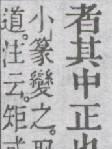 者其中正也
小篆變之
道注云矩或